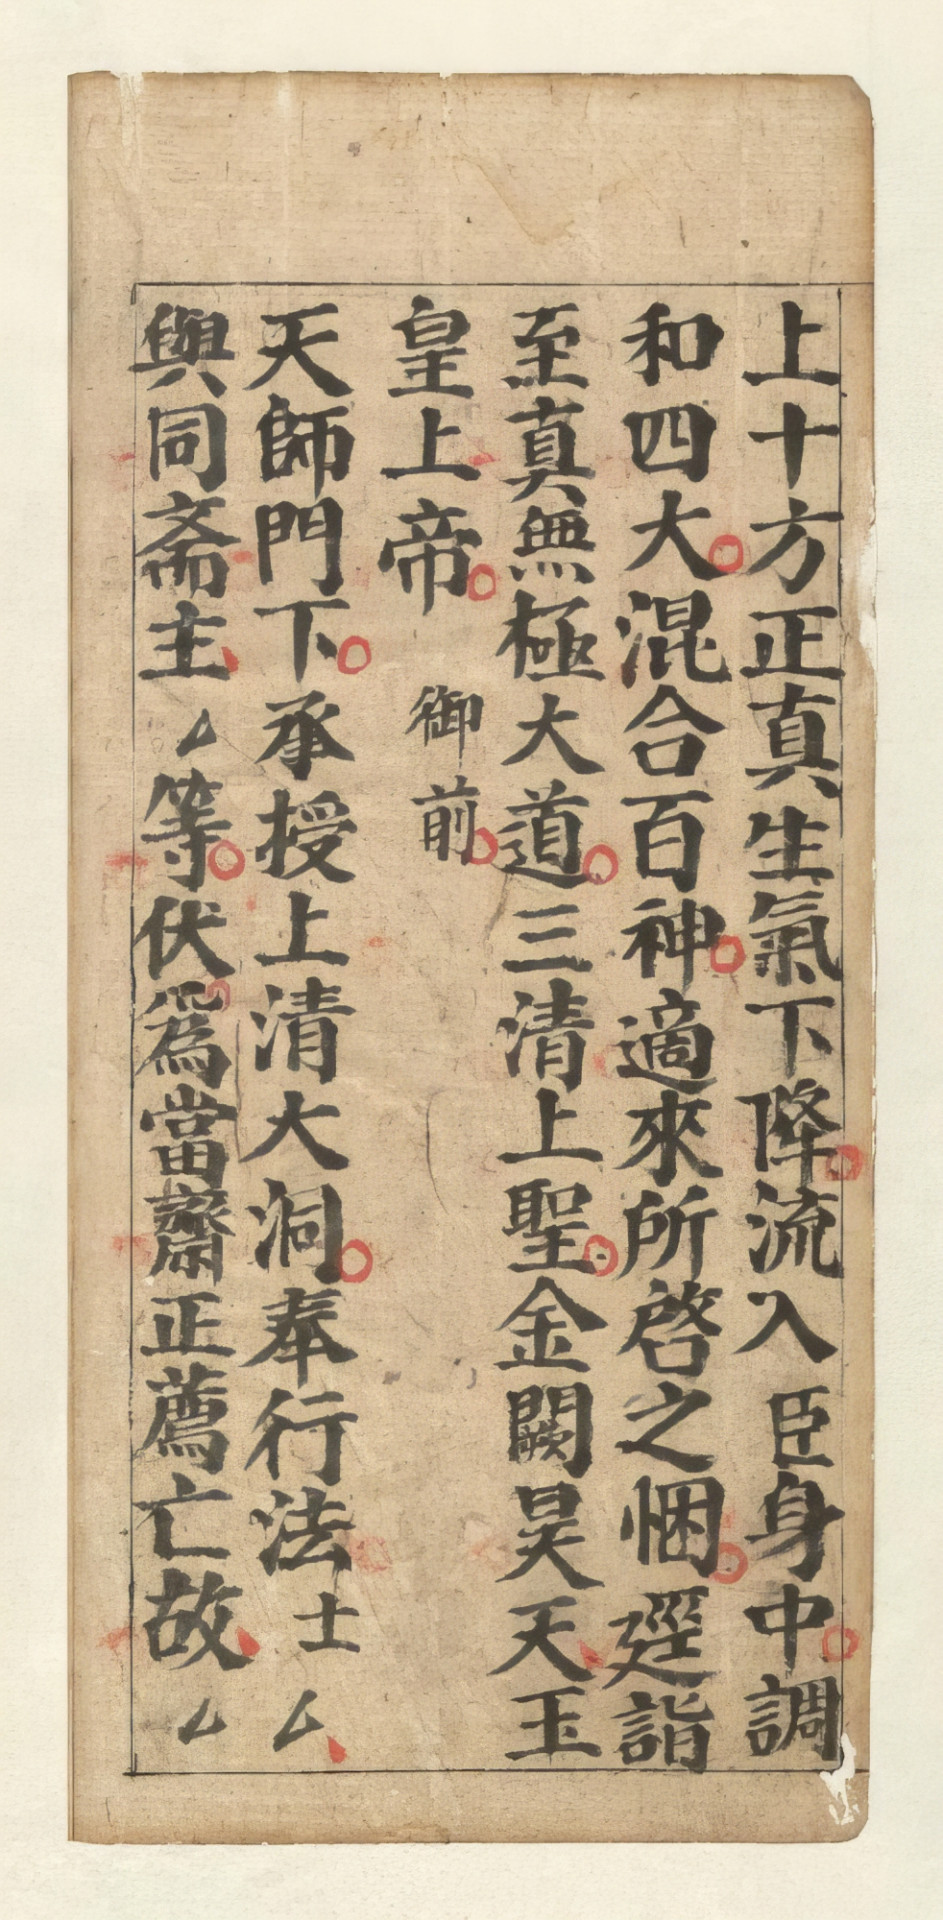 上十方正真生氣下降流入臣身中調
和四大混合百神適來所啓之悃逕詣
至真無極大道三清上聖金闕昊天玉
皇上帝御前
天師門下承授上清大洞奉行法士厶
與同斋主厶等伏爲當齋正薦亡故厶